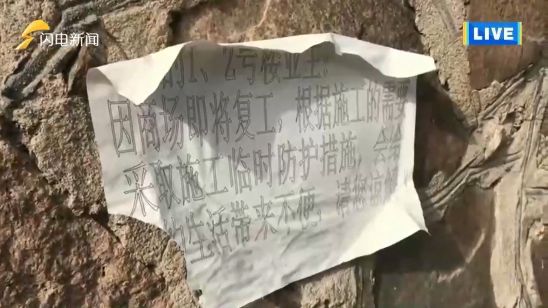 闪电新闻
LIVE
的1、2号楼业主:
因商场即将复工,根据施工的需要
采取施工临时防护措施,会给
的生活带来不便,请您谅解